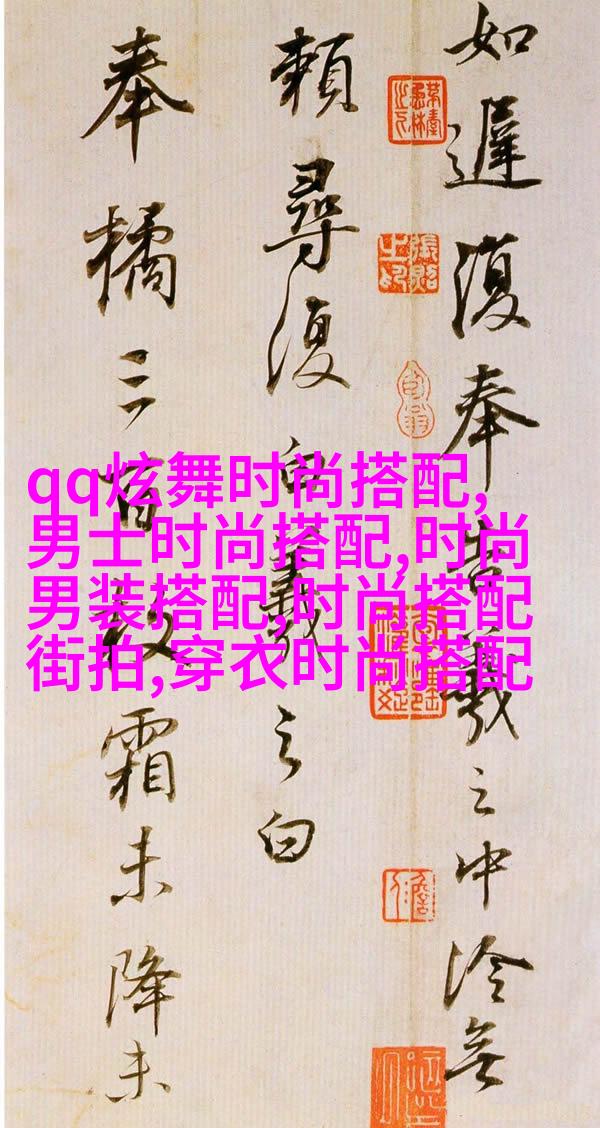 如遲復奉告羲之中冷無
賴尋復白羲之白
奉橘三百枚霜未降未
qq炫舞时尚搭配,
男士时尚搭配,时尚
男装搭配,时尚搭配
街拍,穿衣时尚搭配